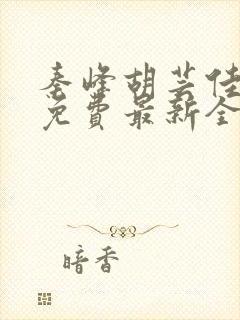 秦峰胡芸佳
免费最新全
暗香